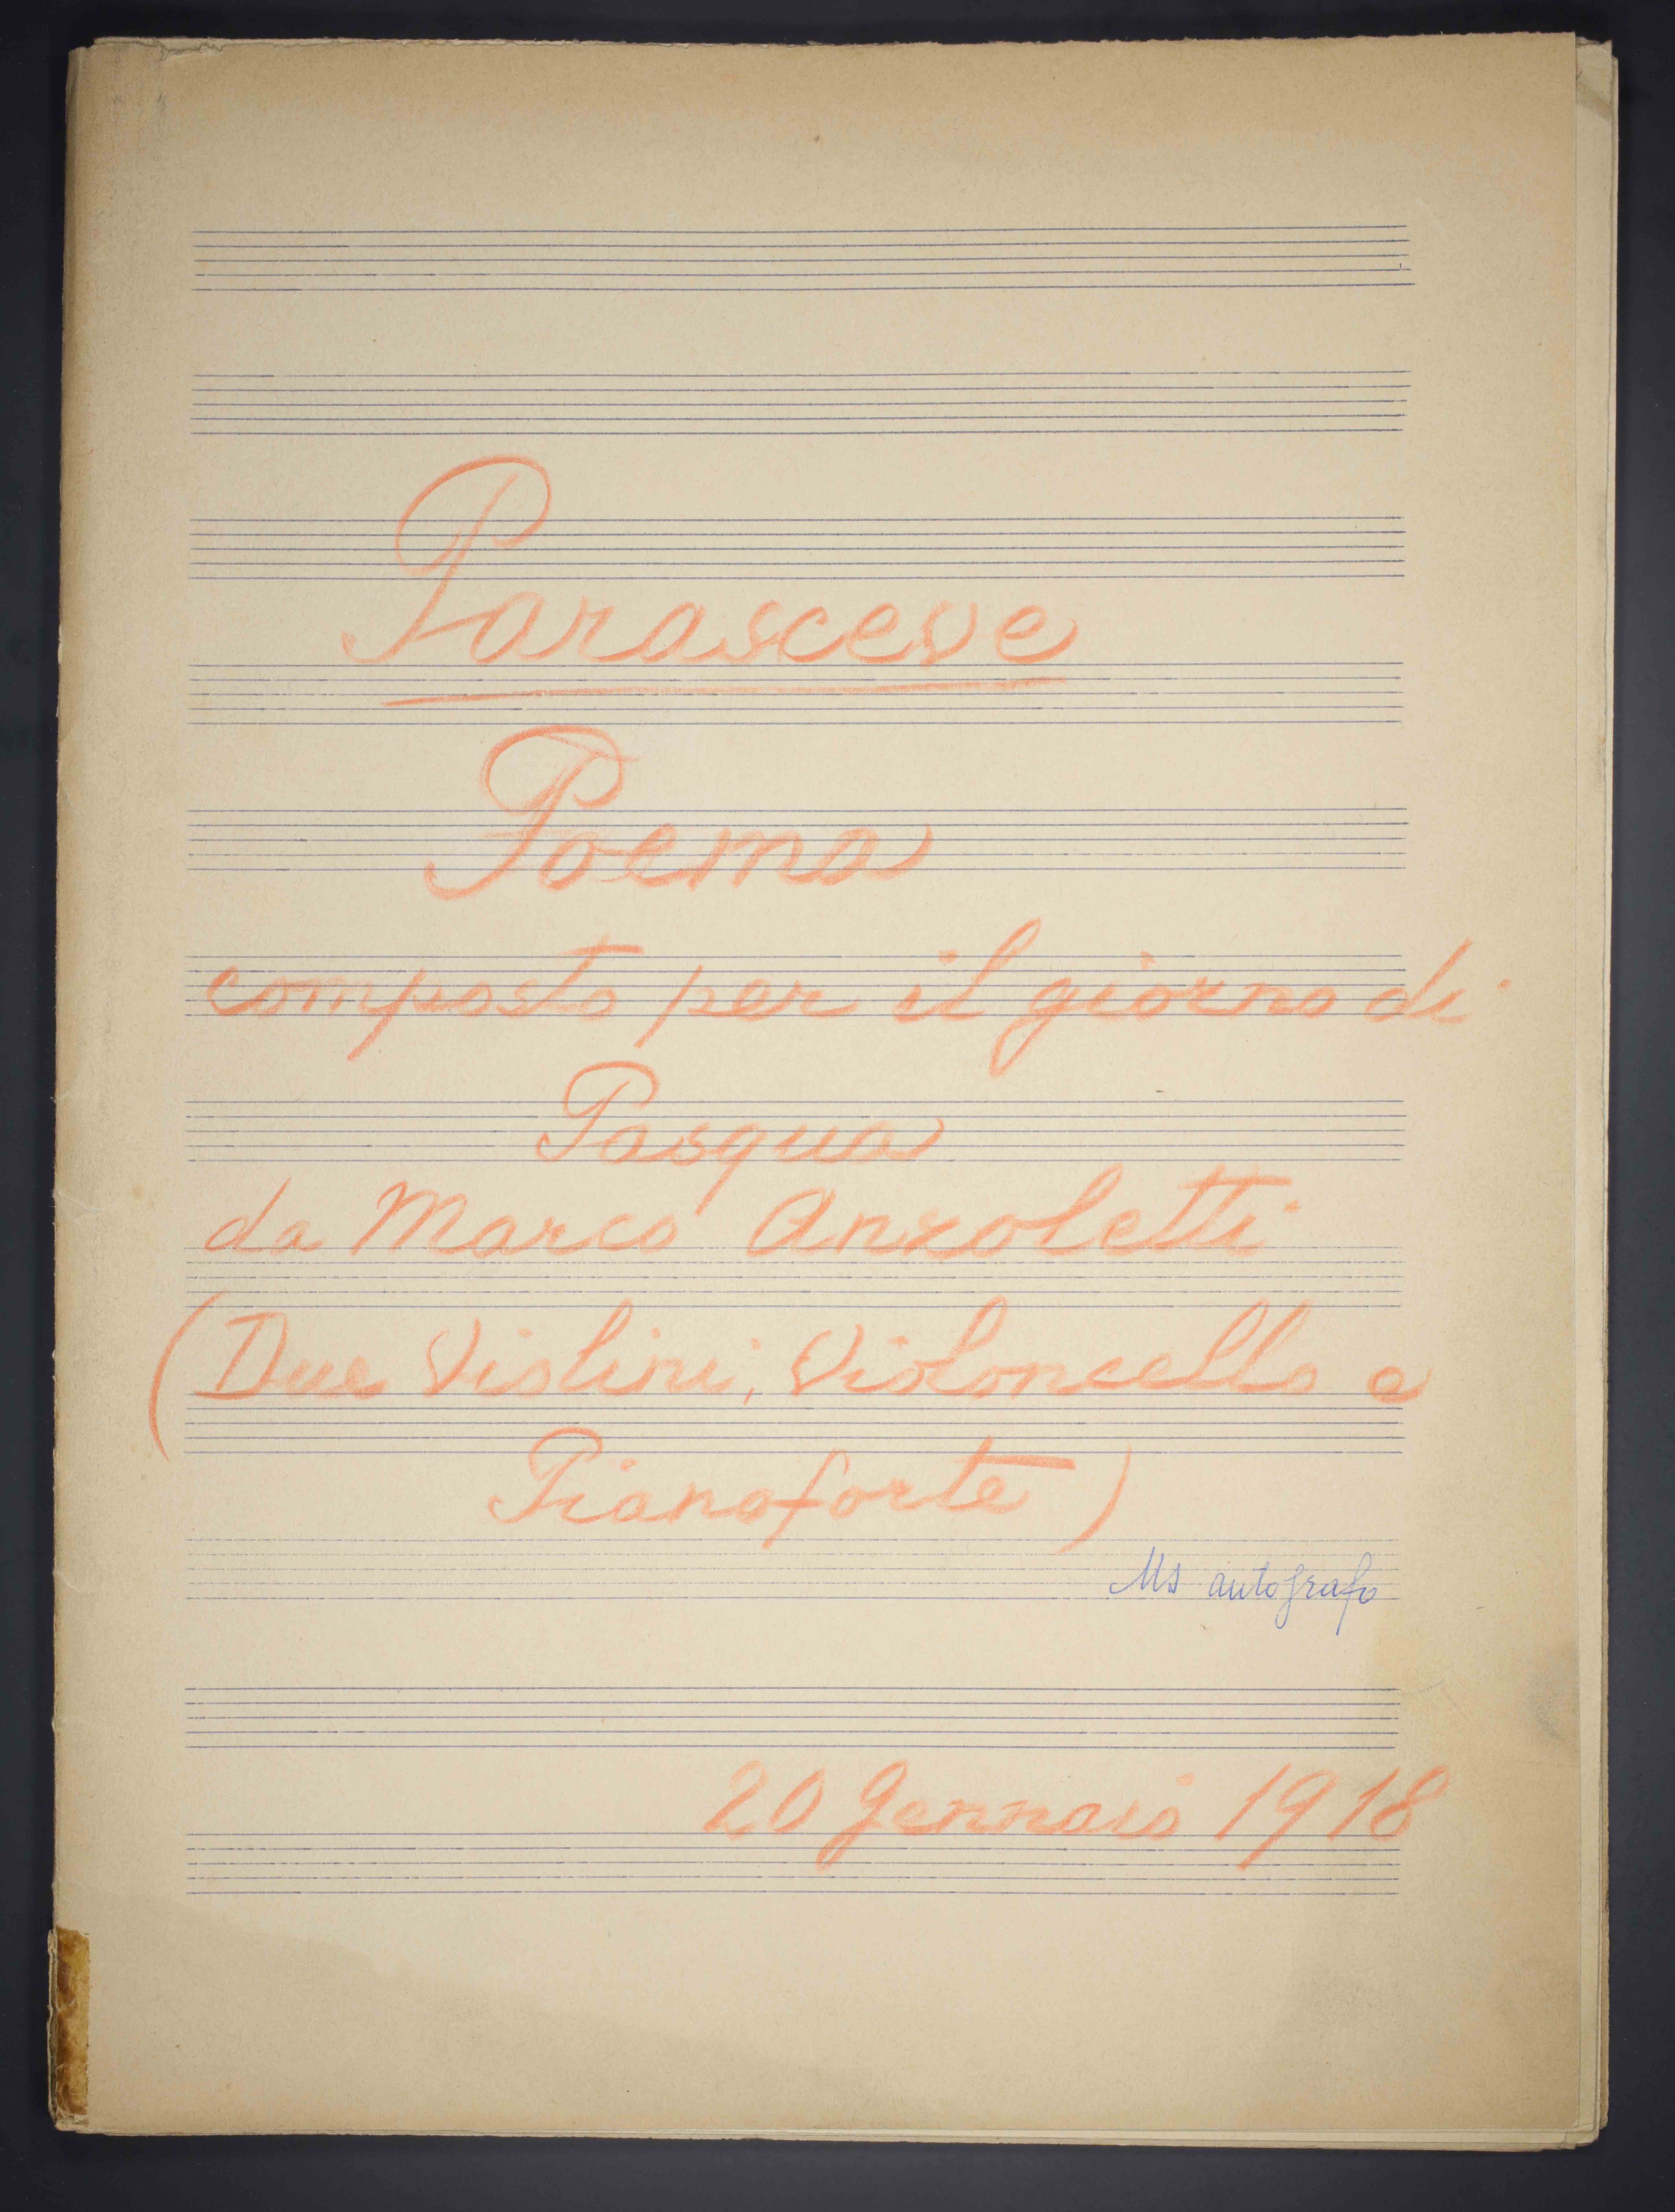 Parasceve
Poema
composto per il giorno di
Pasqua
da Marco Anzoletti
(Due Violini, Violoncello e
Pianoforte)
Ms autografo
20 Gennaio 1918